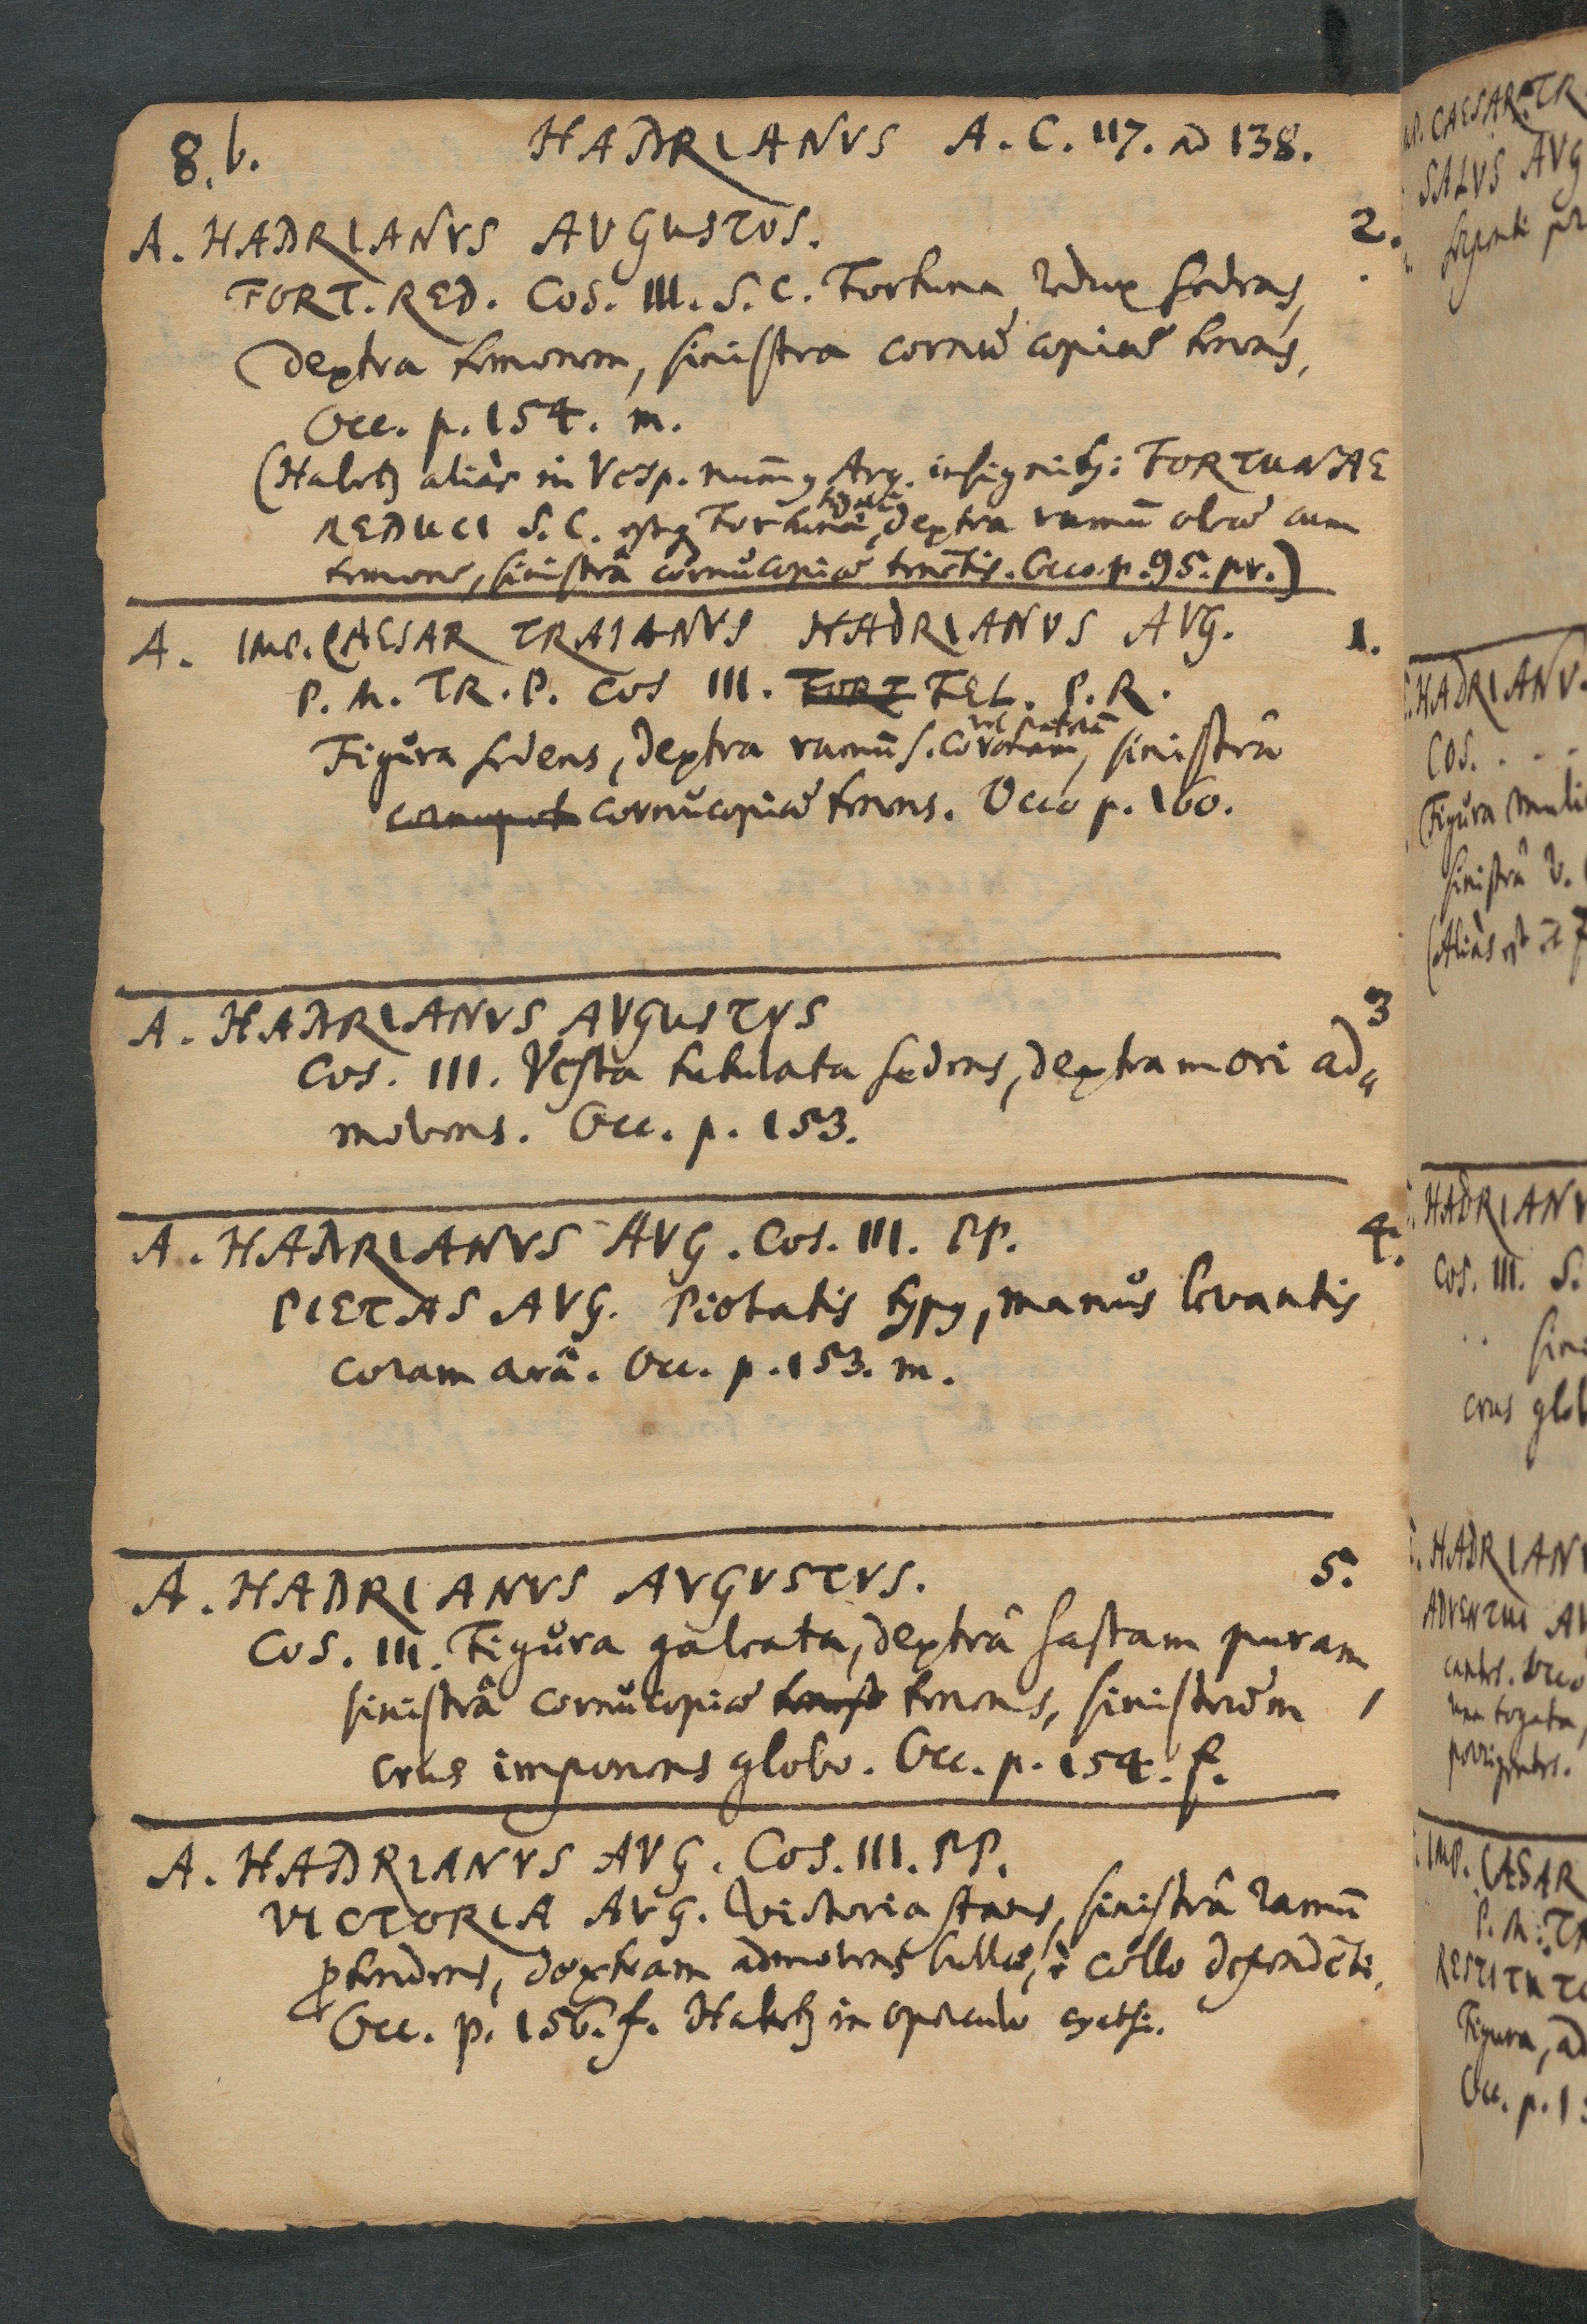 8.b. HADRIANVS A.C. 117. ad 138.
A. HADRIANVS AUGUSTUS. 2.
FORT. RED. Cos. III. S.C. Fortuna redux sedens,
dextra temonem, sinistra cornu copiae tenens,
Occ. p. 154. m.
(Habetur aliàs in Vesp. num̄ Arg. insignit: FORTUNAE
REDUCI S.C. Fortunae, dextra ramū oleae cum
temone, sinistrâ cornucopiae tenētis. Occo. p. 95. pr.)
A. IMP. CAESAR TRAIANVS HADRIANVS AVG. 1.
P.M. TR. P. COS III. FORT FEL. P.R.
Figŭra sedens, dextra ramū s. Coronam vel paterā, sinistrâ
cornucopiae tenens. Occo p. 160.
A. HADRIANVS AVGUSTVS 3
Cos. III. Vesta tutulata sedens, dextram ori ad„
movens. Occ. p. 153.
A. HADRIANVS AVG. Cos. III. PP. 4.
PIETAS AVG. Pietatis typ9, manŭs levantis
coram arâ. Occ. p. 153. m.
A. HADRIANVS AVGVSTVS. 5.
COS. III. Figŭra galeata, dextrâ hastam puram,
sinistrâ cornŭcopiae tenens, sinistrum
crus imponens globo. Occ. p. 154. f.
A. HADRIANVS AVG. Cos. III. PP.
VICTORIA AVG. Victoria stans, sinistrâ ramū
ptendens, dextram admovens bullae, è collo dependēti,
Occ. p. 156. f. Habetur in operculo cyathi.
AP. CAESAR. TR
SALVS AVG
HADRIANV
COS. . . .
Figŭra muli
sinistrâ v.
(Aliàs est
HADRIANV
COS. III. S.
sini
crus glob
HADRIANV
ADVENTUI AV
cantes. Occo
una togata,
porrigentes.
IMP. CAESAR
P. M. TR
RESTITUTO
Figura, ad
Occ. p. 1